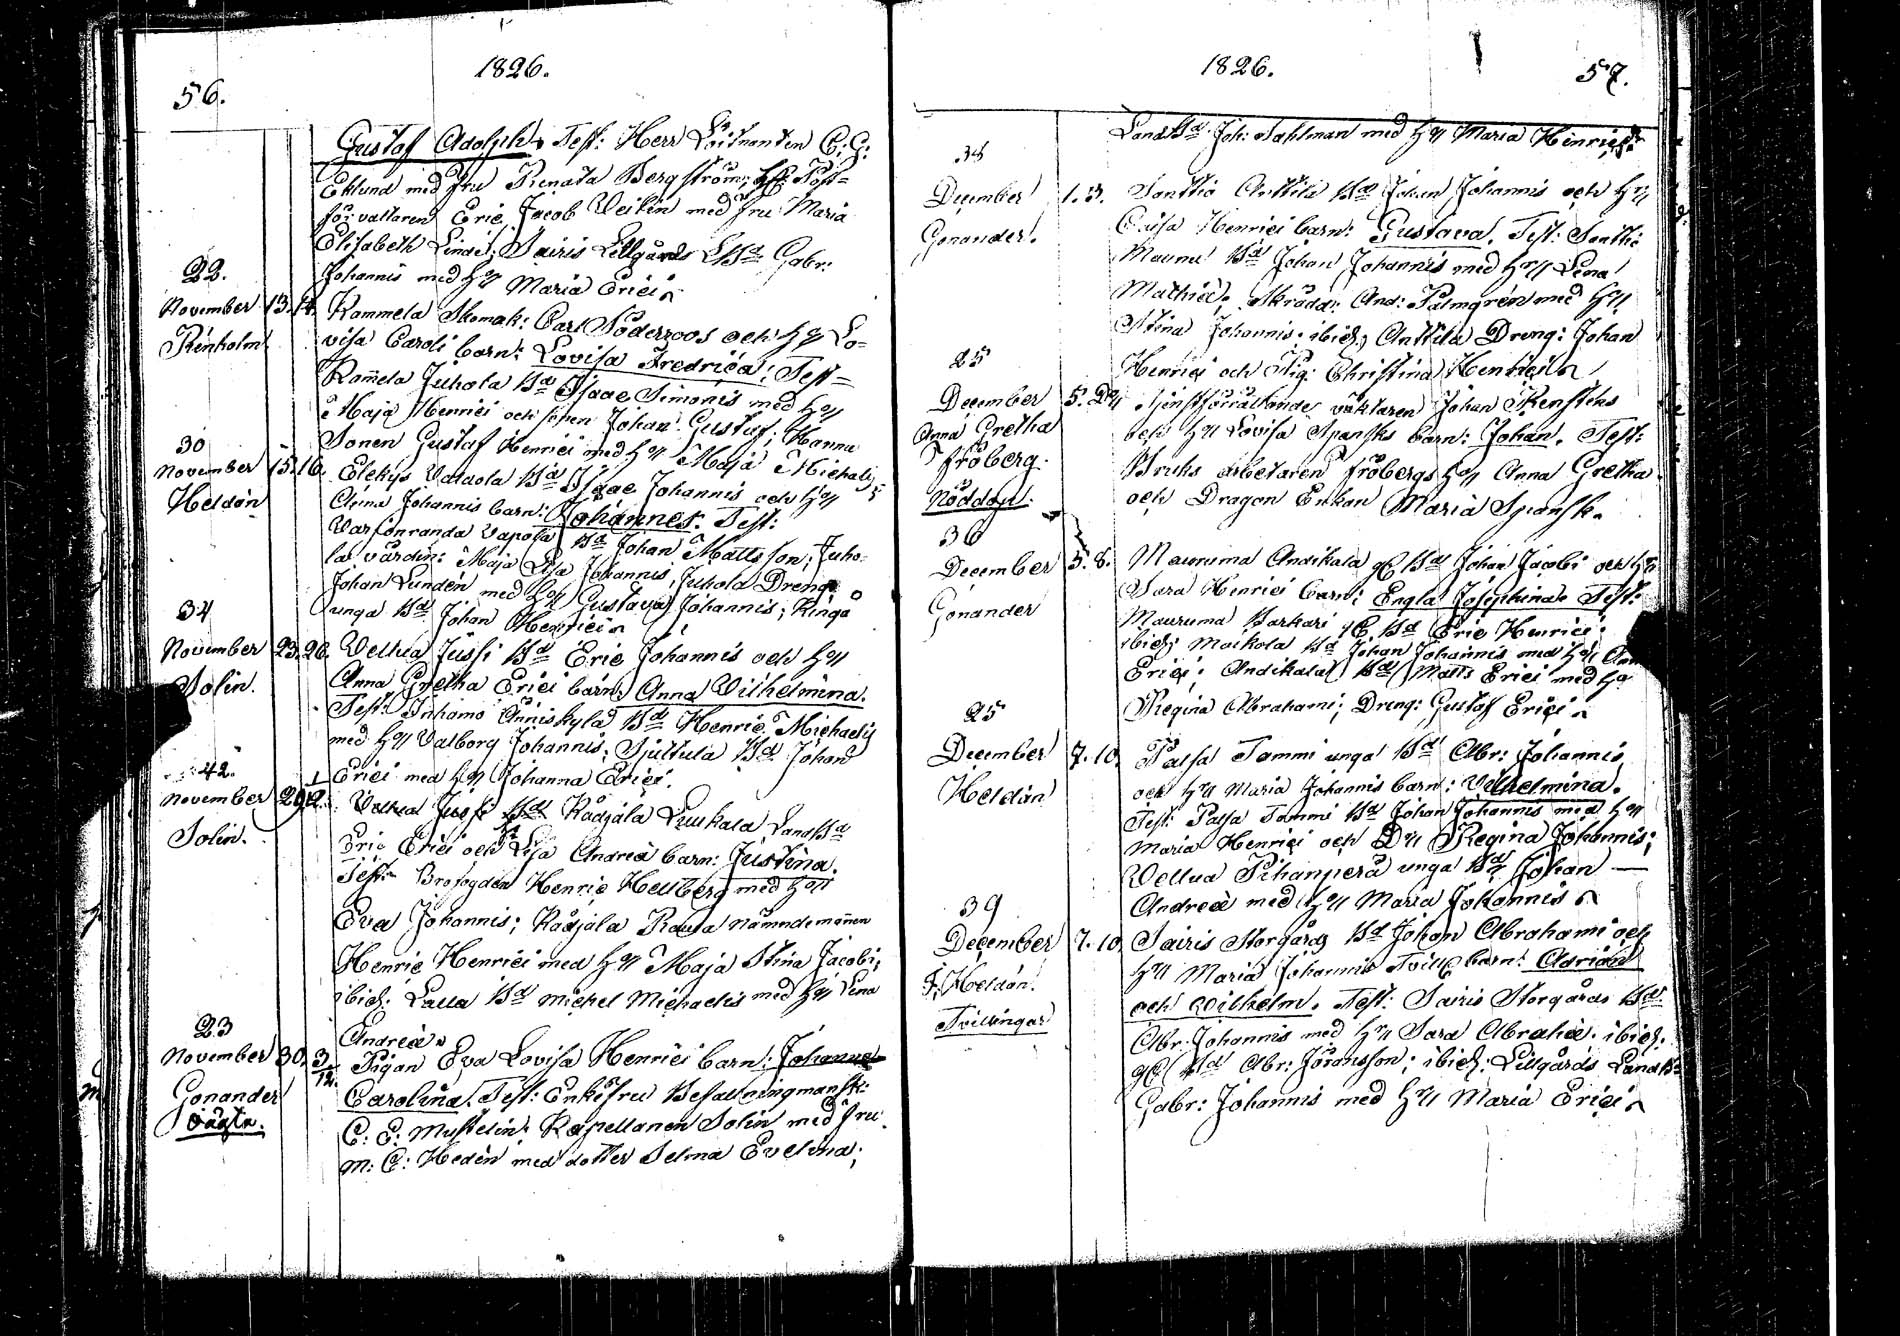 56.
1826.
Gustaf Adolph. Test: Herr Löitnanten C: G:
Eklund med fru Renata Bergström; Post=
förvaltaren Eric Jacob Veikin med fru Maria
Elisabeth Lindel; Sairis Lillgårds LBd Gabr:
22.
Johannis med hn Maria Erici
November 13. 14.
Rammela Skomak: Carl Söderroos och hn Lo=
Renholm
visa Caroli barn: Lovisa Fredrica; Test=
Rammela Juhola Bd Isaac Simonis med hn
Maja Henrici och sonen Johan Gustaf; Hannu
30
Sonen Gustaf Henrici med hn Maja Michalis;
November 15. 16.
Elekys Vataola Bd Isaac Johannis och hn
Heldán
Anna Johannis barn: Johannes. Test:
Vapola Bd Johan Mattsson; Juho=
la värdin: Maja Lisa Johannis, Juhola Dreng:
Johan Lunden med hn Gustava Johannis; Ringa
34
unga Bd Johan Henrici
November 23. 26.
Vellua Jussi Bd Eric Johannis och hn
Solin.
Anna Gretha Erici barn: Anna Vilhelmina.
Test: Inhamo Änniskylä Bd Henric Michaelis
med hn Valborg Johannis; Sjuttula Bd Johan
42.
Erici med hn Johanna Erici.
November 29
Vellua Jussi Kådjala Luukala LandBd
Solin.
Eric Erici och Lisa Andreæ barn: Justina.
Test: Brofogden Henric Hellberg med hn
Eva Johannis; Kådjala Rauta nämndemannen
Henric Henrici med hn Maja Stina Jacobi;
ibid: Lalla Bd Michel Michaelis med hn Lena
23
Andreæ
November 30. 3/12.
Pigan Eva Lovisa Henrici barn: Johanna
Gonander
Carolina. Test: Enkefru Befallningmansk:
oägta.
C: E: Mustelin; Kapellanen Solin med fru
M: C: Hedén med dotter Selma Evelina;
1826.
57.
LandtBd Joh: Sahlman med hn Maria Henrici
38
December 1. 3.
Santtio Anttila Bd Johan Johannis och hn
Gonander.
Caisa Henrici barn: Gustava. Test: Santtio
Maunu Bd Johan Johannis med hn Lena
Mathiæ; Skrädd: And: Palmgrén med hn
Stina Johannis; ibid: Anttila Dreng: Johan
25
Henrici och Pig: Christina Henrici
December 5. Dn
Tjenstförrättande väktaren Johan Renstens
Anna Gretha
och hn Lovisa Spansks barn: Johan. Test:
Fröberg.
Bruks arbetaren Fröbergs hn Anna Gretha
Nöddop.
och Dragon Enkan Maria Spansk.
36
December 5. 8.
Mauruma Andikala gl Bd Johan Jacobi och hn
Gonander
Sara Henrici barn: Engla Josephina. Test:
Mauruma Barkari gl Bd Eric Henrici;
ibid: Maikola Bd Johan Johannis med hn Ann
Erici; Andikala Bd Matts Erici med hn
Regina Abrahami; Dreng: Gustaf Erici
25
December 7. 10.
Palsa Tammi unga Bd Abr: Johannis
Heldán
och hn Maria Johannis barn: Vilhelmina.
Test: Palsa Tammi Bd Johan Johannis med hn
Maria Henrici och Dn Regina Johannis;
Vellua Pihanperä unga Bd Johan
Andreæ med hn Maria Johannis
39
December 7. 10.
Sairis Storgårds Bd Johan Abrahami och
F: Heldán.
hn Maria Johannis Tvill: barn: Adrian
Tvillingar
och Wilhelm. Test: Sairis Storgårds Bd
Abr: Johannis med hn Sara Abrahæ; ibid:
gl Bd Abr: Jöransson; ibid: Lillgårds LandBd
Gabr: Johannis med hn Maria Erici